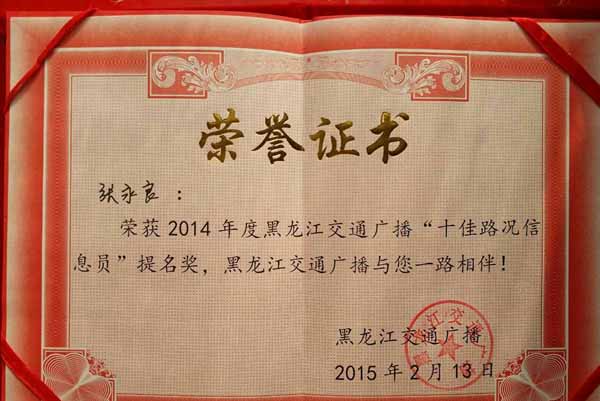 荣誉证书
张永良：
荣获2014年度黑龙江交通广播“十佳路况信
息员”提名奖，黑龙江交通广播与您一路相伴！
黑龙江交通广播
2015年2月13日